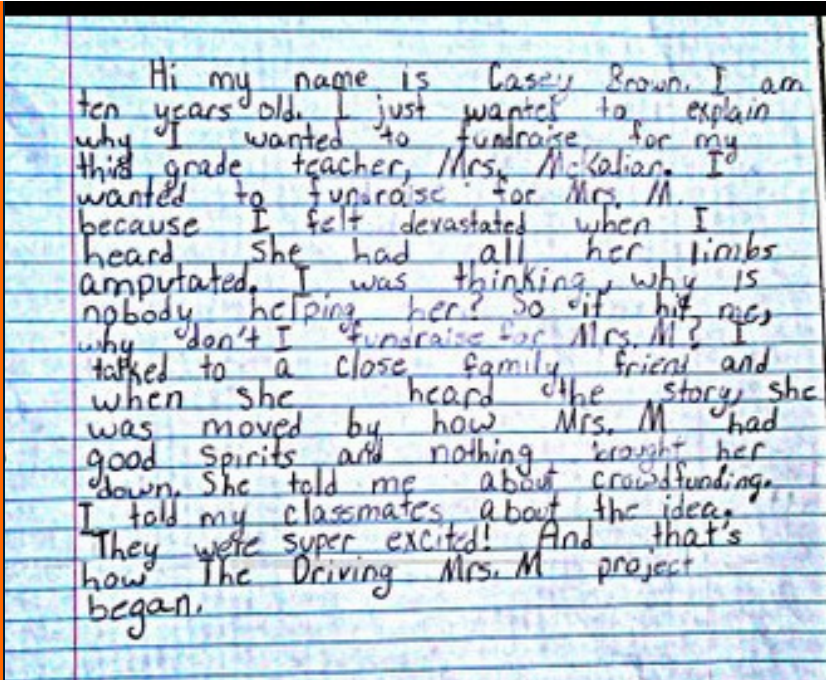 Hi my name is Casey Brown. I am
ten years old. I just wanted to explain
why I wanted to fundraise for my
third grade teacher, Mrs. McKalian. I
wanted to fundraise for Mrs. M.
because I felt devastated when I
heard she had all her limbs
amputated. I was thinking, why is
nobody helping her? So it hit me,
why don't I fundraise for Mrs. M? I
talked to a close family friend and
when she heard the story, she
was moved by how Mrs. M had
good spirits and nothing brought her
down. She told me about crowdfunding.
I told my classmates about the idea.
They were super excited! And that's
how The Driving Mrs. M project
began.